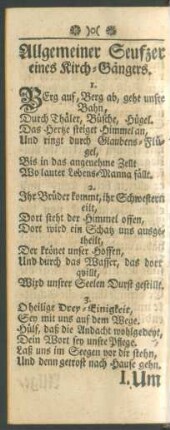 Allgemeiner Seufzer
eines Kirch-Gängers.
1.
Berg auf, Berg ab, geht unsre
Bahn,
Durch Thäler, Büsche, Hügel.
Das Hertze steiget Himmel an,
Und ringt durch Glaubens-Flü-
gel,
Bis in das angenehme Zelt
Wo lauter Lebens-Manna fällt.
2.
Ihr Brüder kommt, ihr Schwestern
eilt,
Dort steht der Himmel offen,
Dort wird ein Schatz uns ausge-
theilt,
Der krönet unser Hoffen,
Und durch das Wasser, das dort
qvillt,
Wird unsrer Seelen Durst gestillt.
3.
O heilige Drey-Einigkeit,
Sey mit uns auf dem Wege.
Hülf, daß die Andacht wohlgedeyt,
Dein Wort sey unsre Pflege.
Laß uns im Seegen vor dir stehn,
Und denn getrost nach Hause gehn.
I. Um